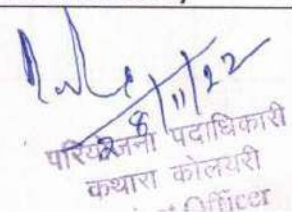 28/11/22
परियोजना पदाधिकारी
कथारा कोलयरी
Officer